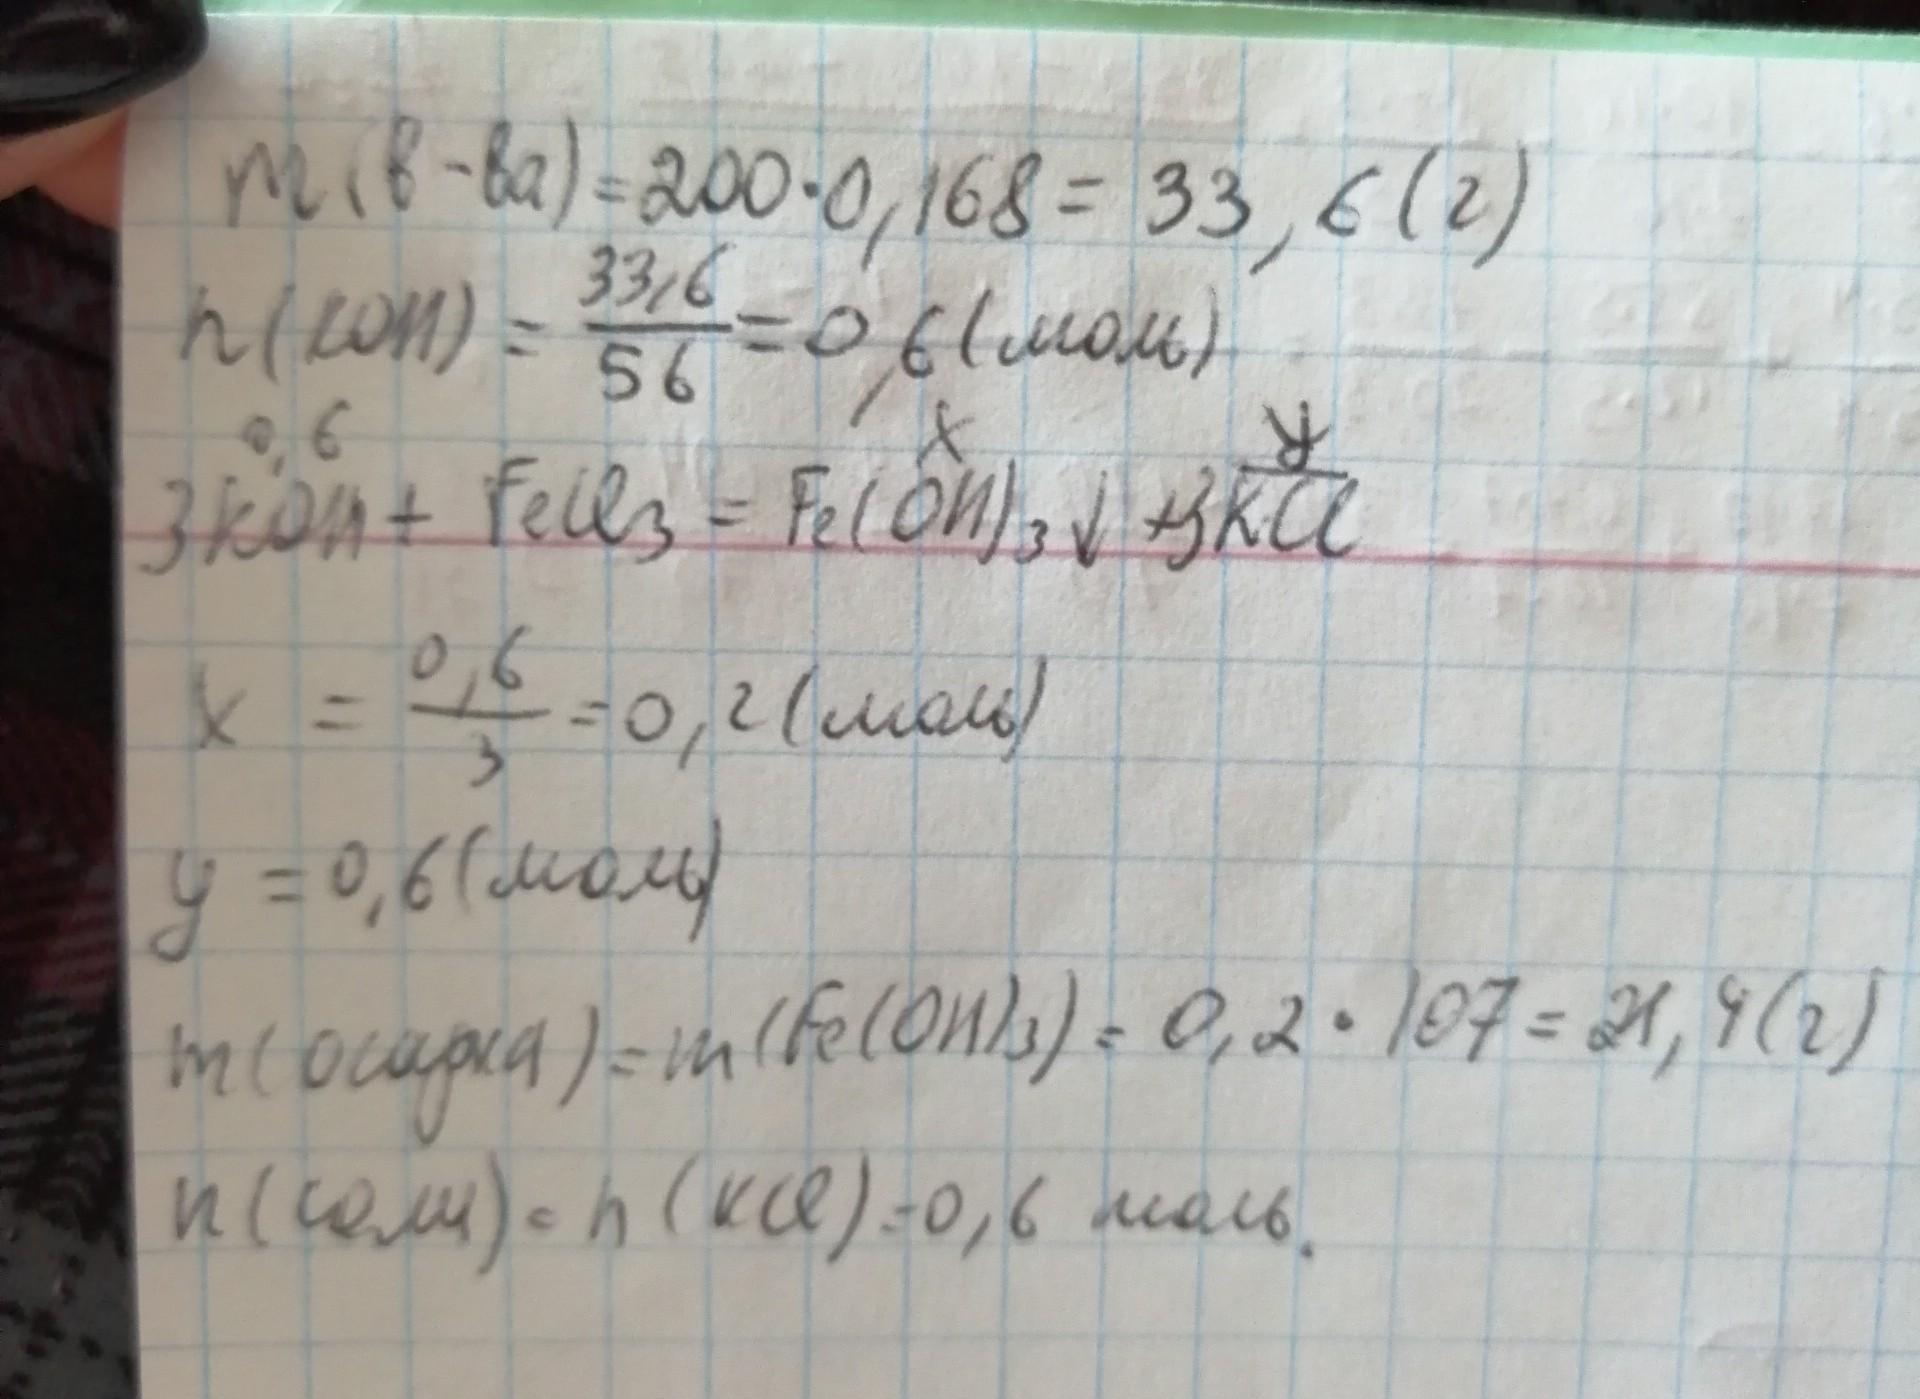 m(в-ва)=200·0,168=33,6(г)
n(KOH)=33,6/56=0,6(моль)
0,6 x y
3KOH+FeCl₃=Fe(OH)₃↓+3KCl
x=0,6/3=0,2(моль)
y=0,6(моль)
m(осадка)=m(Fe(OH)₃)=0,2·107=21,4(г)
n(соли)=n(KCl)=0,6 моль.